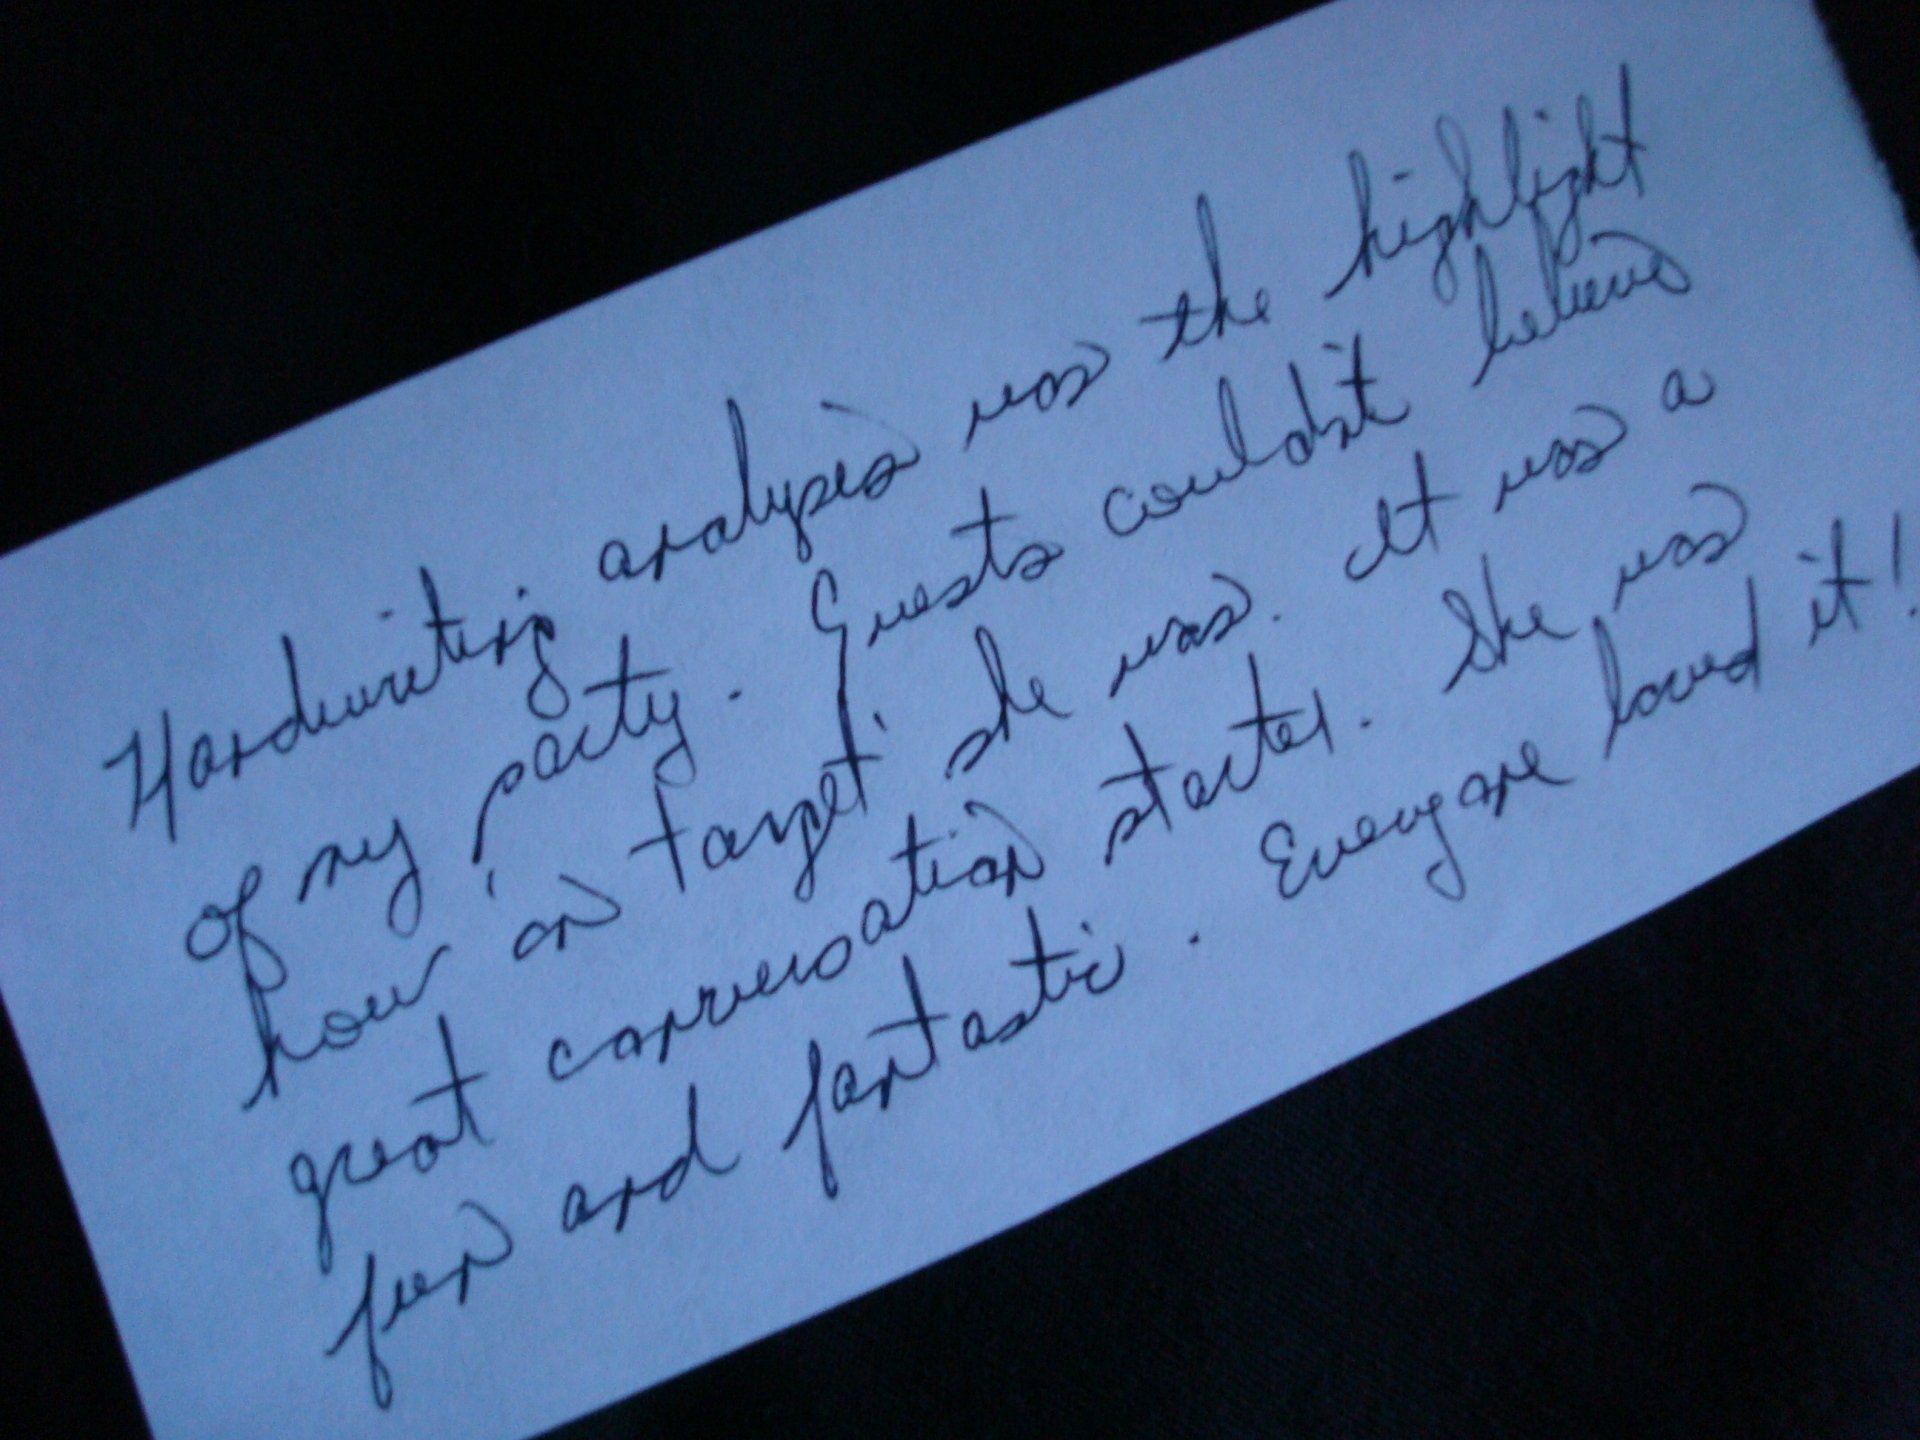 Handwriting analysis was the highlight
of my party. Guests couldn't believe
how 'on target' she was. It was a
great conversation starter. She was
fun and fantastic. Everyone loved it!